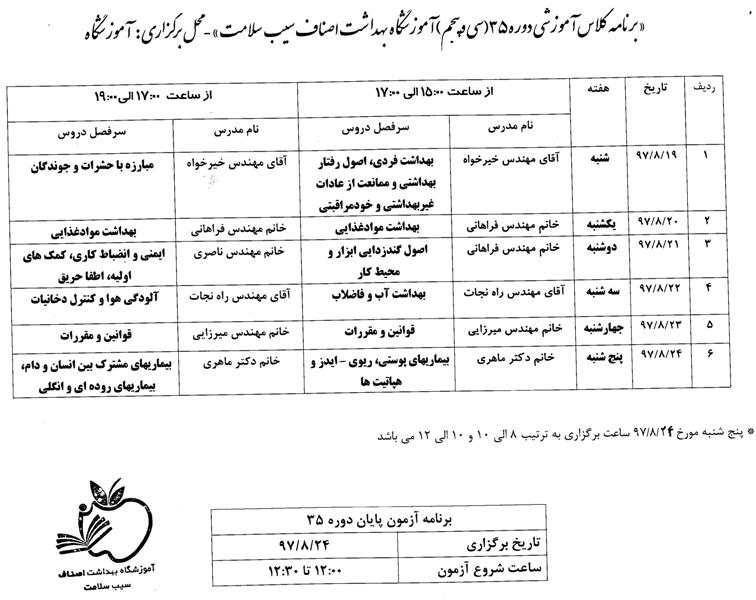 «برنامه کلاس آموزشی دوره ۳۵(سی و پنجم)آموزشگاه بهداشت اصناف سیب سلامت»-محل برگزاری: آموزشگاه
ردیف تاریخ هفته از ساعت ۱۵:۰۰ الی ۱۷:۰۰ از ساعت ۱۷:۰۰ الی ۱۹:۰۰
نام مدرس سرفصل دروس نام مدرس سرفصل دروس
۱ ۹۷/۸/۱۹ شنبه آقای مهندس خیرخواه بهداشت فردی، اصول رفتار آقای مهندس خیرخواه مبارزه با حشرات و جوندگان
بهداشتی و ممانعت از عادات
غیربهداشتی و خودمراقبتی
۲ ۹۷/۸/۲۰ یکشنبه خانم مهندس فراهانی بهداشت موادغذایی خانم مهندس فراهانی بهداشت موادغذایی
۳ ۹۷/۸/۲۱ دوشنبه خانم مهندس فراهانی اصول گندزدایی ابزار و خانم مهندس ناصری ایمنی و انضباط کاری، کمک های
محیط کار اولیه، اطفا حریق
۴ ۹۷/۸/۲۲ سه شنبه آقای مهندس راه نجات بهداشت آب و فاضلاب آقای مهندس راه نجات آلودگی هوا و کنترل دخانیات
۵ ۹۷/۸/۲۳ چهارشنبه خانم مهندس میرزایی قوانین و مقررات خانم مهندس میرزایی قوانین و مقررات
۶ ۹۷/۸/۲۴ پنج شنبه خانم دکتر ماهری بیماریهای پوستی، ریوی – ایدز و خانم دکتر ماهری بیماریهای مشترک بین انسان و دام،
هپاتیت ها بیماریهای روده ای و انگلی
* پنج شنبه مورخ ۹۷/۸/۲۴ ساعت برگزاری به ترتیب ۸ الی ۱۰ و ۱۰ الی ۱۲ می باشد
برنامه آزمون پایان دوره ۳۵
تاریخ برگزاری ۹۷/۸/۲۴
ساعت شروع آزمون ۱۲:۰۰ تا ۱۲:۳۰
آموزشگاه بهداشت اصناف
سیب سلامت